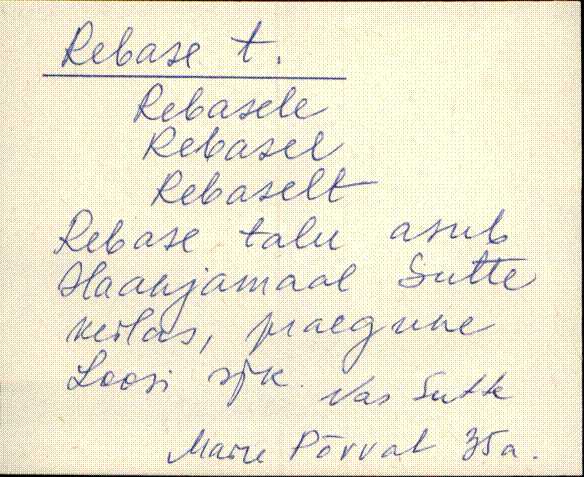 Rebase t.
Rebasele
Rebasel
Rebaselt
Rebase talu asub
Haanjamaal Sutte
külas, praegune
Loosi sjk.
Vas Sutte
Maire Põrval 35a.